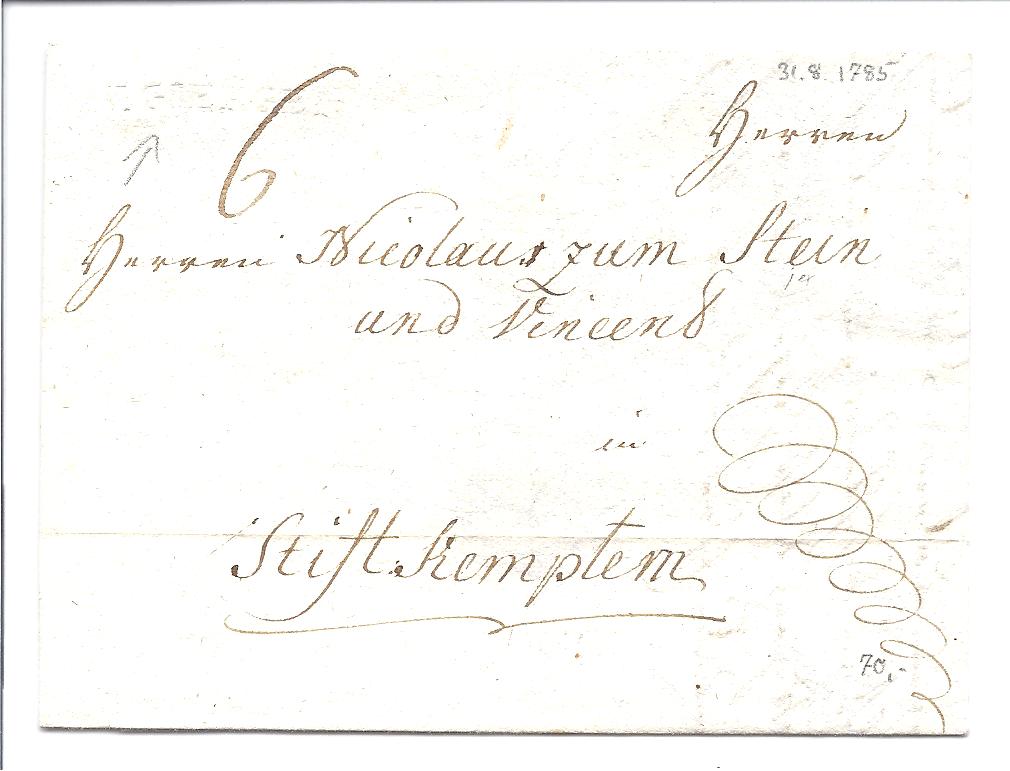 31.8.1785
6
Herren
Herren Nicolaus zum Stein
und Vincend
in
Stift Kemptem
70,-